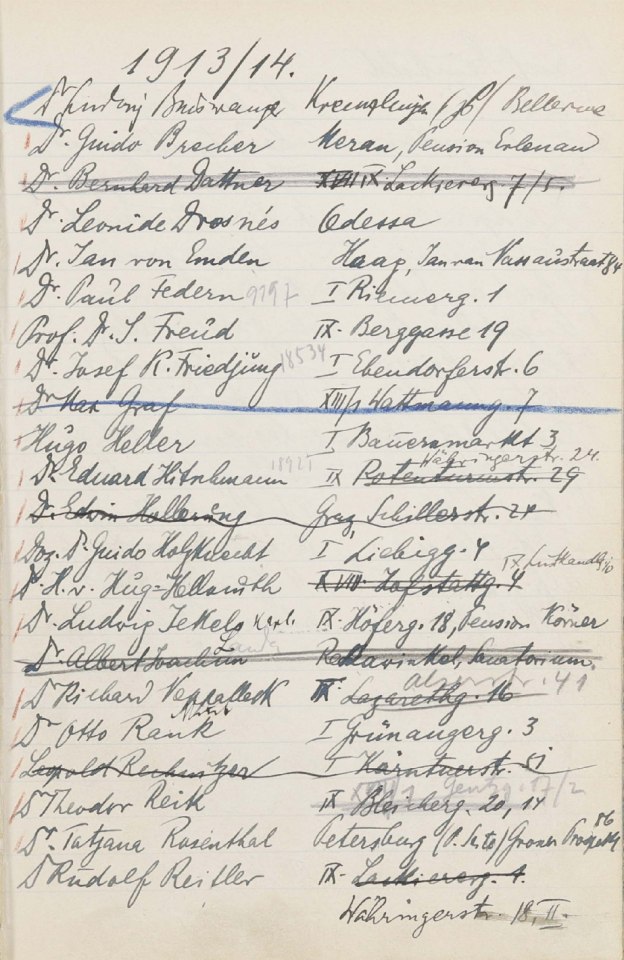 1913/14.
Dr Ludwig Binswanger Kreuzlingen Bellevue
Dr. Guido Brecher Meran, Pension Erlenau
Dr. Bernhard Dattner XVIII IX. Lackiererg. 7/5.
Dr. Leonide Drosnés Odessa
Dr. Jan von Emden Haag, Jan van Nassaustraat 84
Dr. Paul Federn 9797 I Riemerg. 1
Prof. Dr. S. Freud IX. Berggasse 19
Dr. Josef K. Friedjung 18534 I Ebendorferstr. 6
Dr Max Graf XIII/1 Wattmanng. 7
Hugo Heller I Bauernmarkt 3
Währingerstr. 24.
Dr. Eduard Hitschmann 18921 IX Rotenturmstr. 29
Dr. Edwin Hollerung Graz, Schillerstr. 24
Doz. Dr. Guido Holzknecht I, Liebigg. 4
Dr. H. v. Hug-Hellmuth XVIII. 4 IX
Dr. Ludwig Jekels IX. Höferg. 18, Pension Körner
Dr Albert Joachim Rekawinkel, Sanatorium.
Alserstr. 41
Dr Richard Nepalleck IX. Lazarethg. 16
Dr Otto Rank I Grünangerg. 3
Leopold Rechnitzer I Kärntnerstr. 51
Dr Theodor Reik IX Bleicherg. 20, 14
Dr. Tatjana Rosenthal Petersburg 86
Dr Rudolf Reitler IX. Lackiererg. 1.
Währingerstr. 18, II.